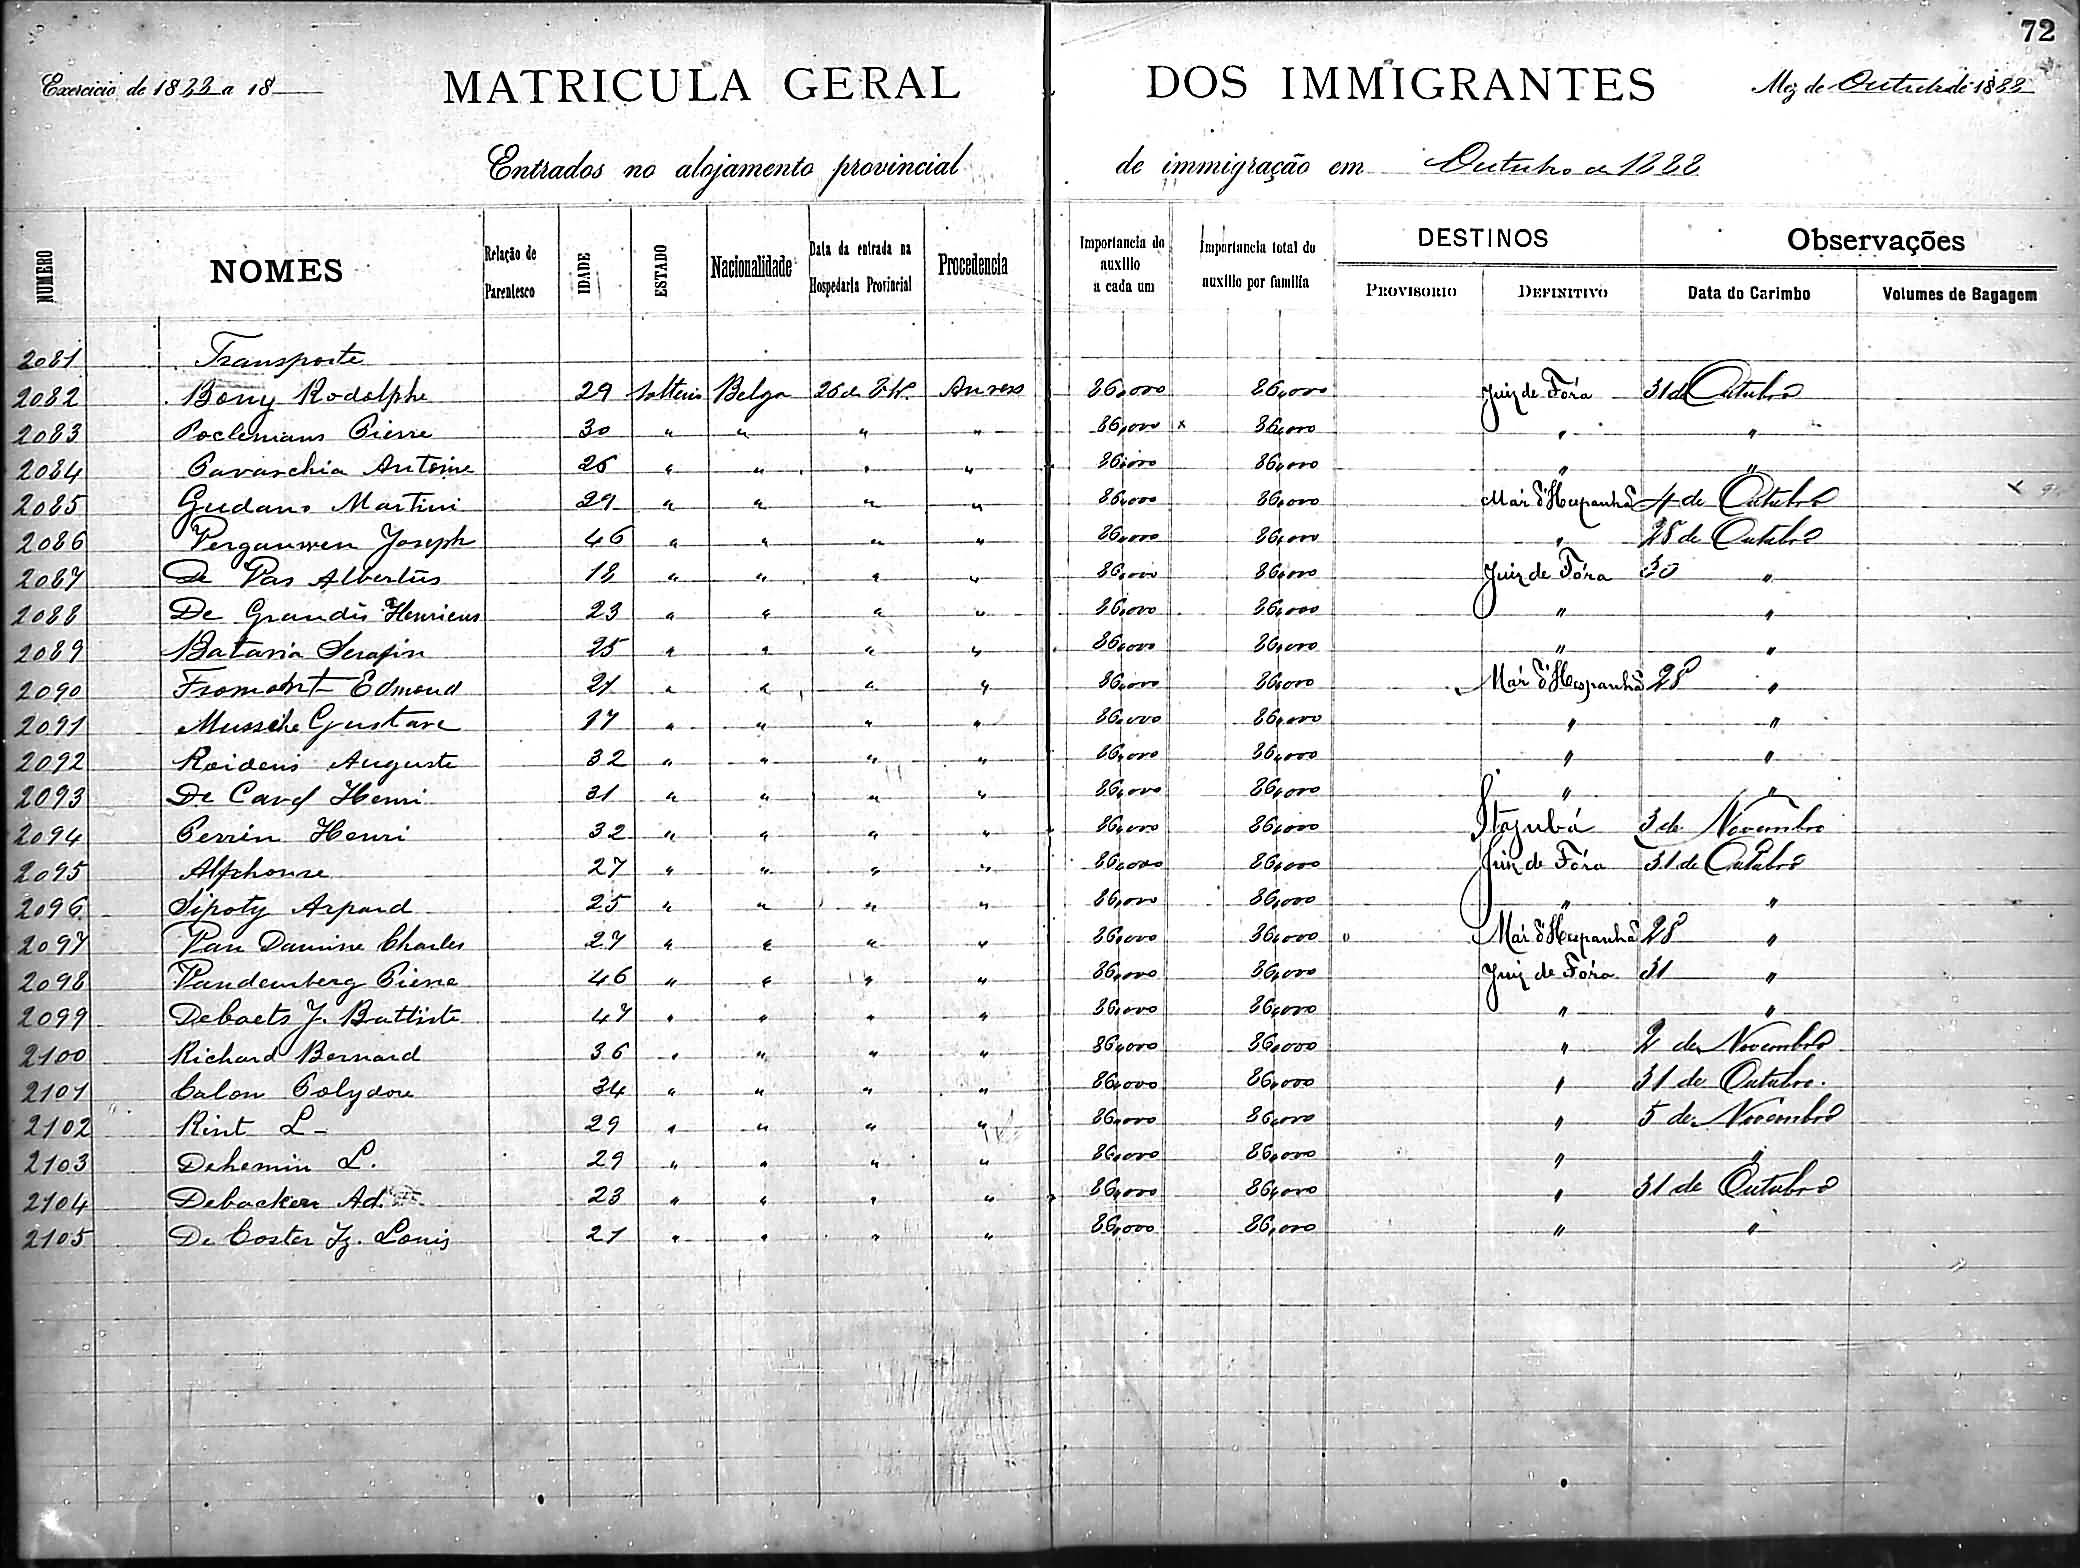 72
Exercicio de 1888 a 18
MATRICULA GERAL DOS IMMIGRANTES
Mez de Outubro de 1888
Entrados no alojamento provincial de immigração em Outubro de 1888
NUMERO NOMES Relação de Parentesco IDADE ESTADO Nacionalidade Data da entrada na Hospedaria Provincial Procedencia Importancia do auxilio a cada um Importancia total do auxilio por familia DESTINOS PROVISORIO DEFINITIVO Observações Data do Carimbo Volumes de Bagagem
2081 Transporte
2082 Bony Rodolphe 29 Solteiro Belga 26 de Anvers 86,000 86,000 Juiz de Fóra 31 de Outubro
2083 Poclemans Pierre 30 " " " " 86,000 x 86,000 " "
2084 Cavaschia Antoine 26 " " " " 86,000 86,000 " "
2085 Gudano Martini 29 " " " " 86,000 86,000 Mar d'Hespanha 4 de Outubro x
2086 Vergauwen Joseph 46 " " " " 86,000 86,000 " 28 de Outubro
2087 De Vas Albertus 18 " " " " 86,000 86,000 Juiz de Fóra 30 "
2088 De Grandis Henricus 23 " " " " 86,000 86,000 " "
2089 Batavia Serafin 25 " " " " 86,000 86,000 " "
2090 Fromont Edmond 21 " " " " 86,000 86,000 Mar d'Hespanha 28 "
2091 Mussche Gustave 17 " " " " 86,000 86,000 " "
2092 Roidens Auguste 32 " " " " 86,000 86,000 " "
2093 De Cavel Henri 31 " " " " 86,000 86,000 " "
2094 Perrin Henri 32 " " " " 86,000 86,000 Itajubá 3 de Novembro
2095 Alphonse 27 " " " " 86,000 86,000 Juiz de Fóra 31 de Outubro
2096 Sipoty Arpard 25 " " " " 86,000 86,000 " "
2097 Van Damme Charles 27 " " " " 86,000 86,000 Mar d'Hespanha 28 "
2098 Vandenberg Pierre 46 " " " " 86,000 86,000 Juiz de Fóra 31 "
2099 Debaets J. Battiste 47 " " " " 86,000 86,000 " "
2100 Richard Bernard 36 " " " " 86,000 86,000 " 2 de Novembro
2101 Calon Polydore 34 " " " " 86,000 86,000 " 31 de Outubro.
2102 Rint L- 29 " " " " 86,000 86,000 " 5 de Novembro
2103 Dehemin L. 29 " " " " 86,000 86,000 " "
2104 Debacker Ad. 23 " " " " 86,000 86,000 " 31 de Outubro
2105 De Coster Louis 21 " " " " 86,000 86,000 " "